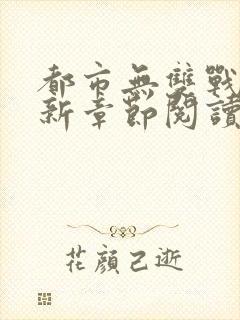 都市無雙戰
新章節閱讀
花顏已逝